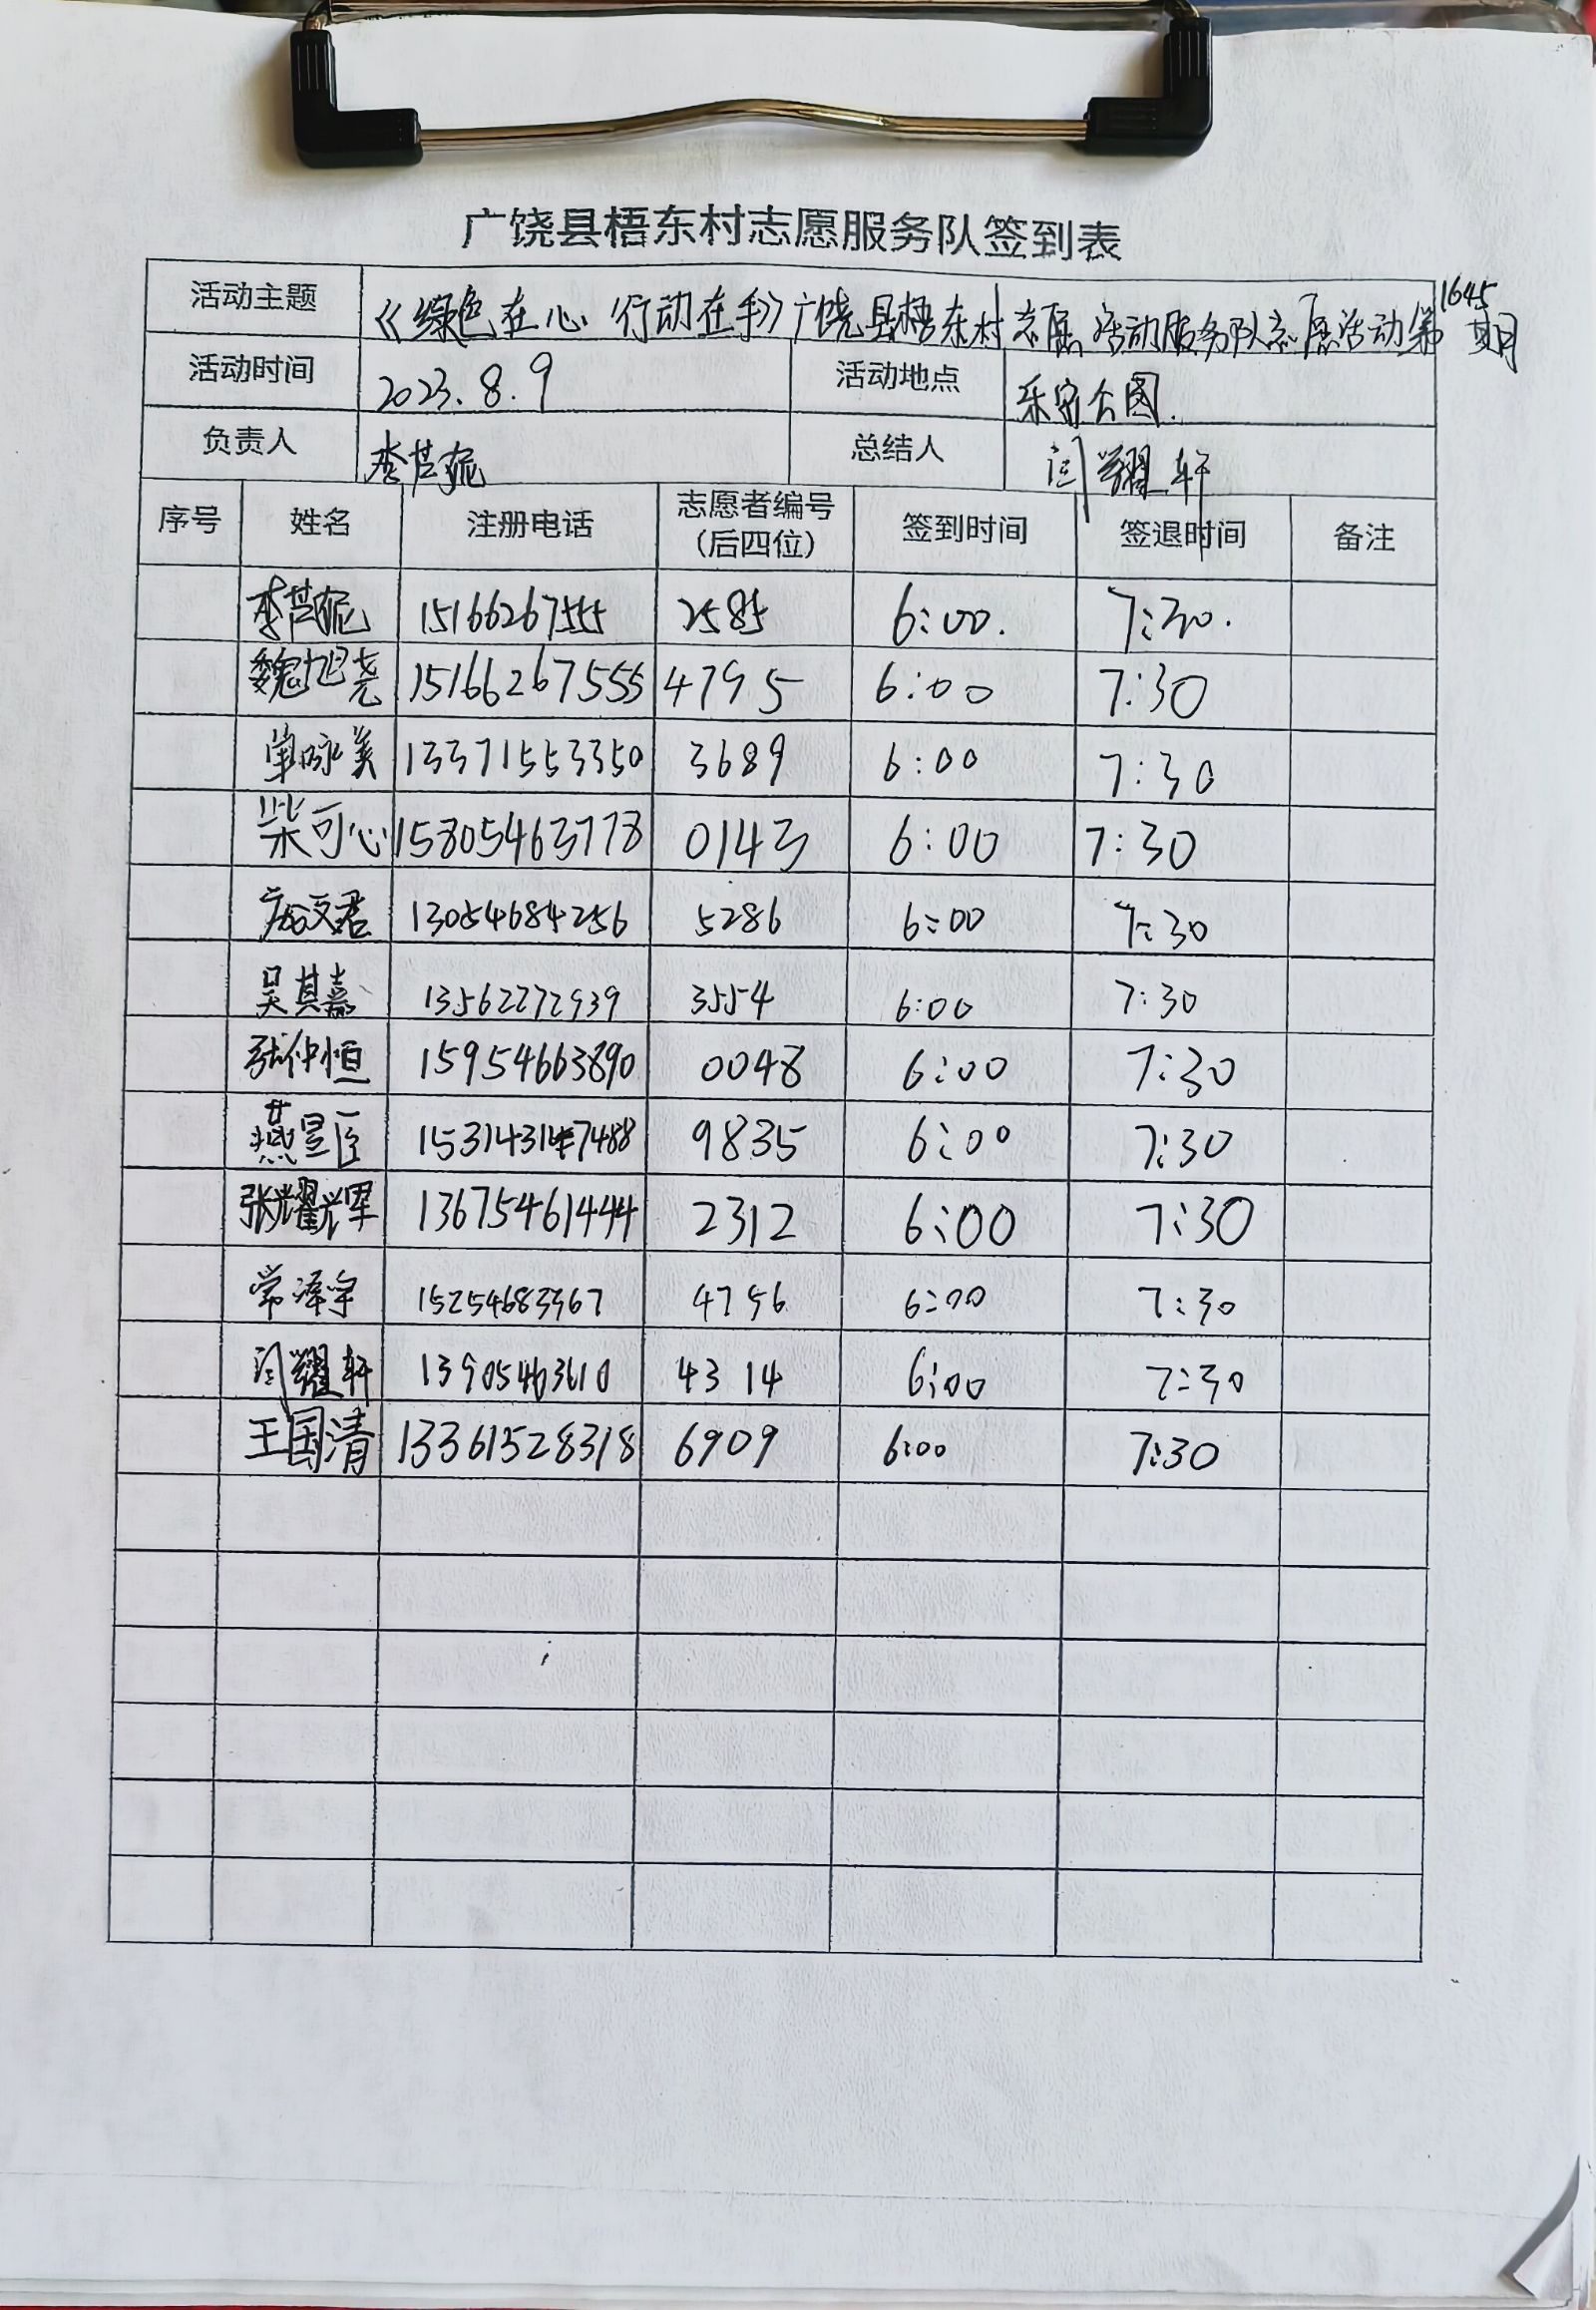 广饶县梧东村志愿服务队签到表
活动主题 《绿色在心 行动在手》广饶县梧东村志愿活动服务队志愿活动第1645期
活动时间 2023.8.9 活动地点 乐安公园.
负责人 李芑葹 总结人 闫耀轩
序号 姓名 注册电话 志愿者编号(后四位) 签到时间 签退时间 备注
15166267555 2585 6:00. 7:30.
魏旭尧 15166267555 4795 6:00 7:30
单咏美 13371553350 3689 6:00 7:30
柴可心 15805463778 0143 6:00 7:30
庞文君 13054684256 5286 6:00 7:30
吴其嘉 13562272939 3554 6:00 7:30
张仲恒 15954663890 0048 6:00 7:30
燕昱臣 9835 6:00 7:30
张耀辉 13675461444 2312 6:00 7:30
常泽宇 15254683967 4796 6:00 7:30
闫耀轩 13905463610 4314 6:00 7:30
王国清 13361528318 6909 6:00 7:30